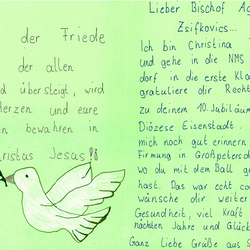 der Friede
der allen
übersteigt, wird
Herzen und eure
en bewahren in
Christus Jesus
Lieber Bischof
Zsifkovics...
Ich bin Christina
und gehe in die NMS
dorf in die erste
gratuliere dir
zu deinem 10. Jubiläum
Diözese Eisenstadt.
mich noch gut erinnern
Firmung in Großpetersdorf
wo du mit dem Ball
hast. Das war echt
wünsche dir weiter
Gesundheit, viel Kraft
nächsten Jahre und
Ganz Liebe Grüße aus